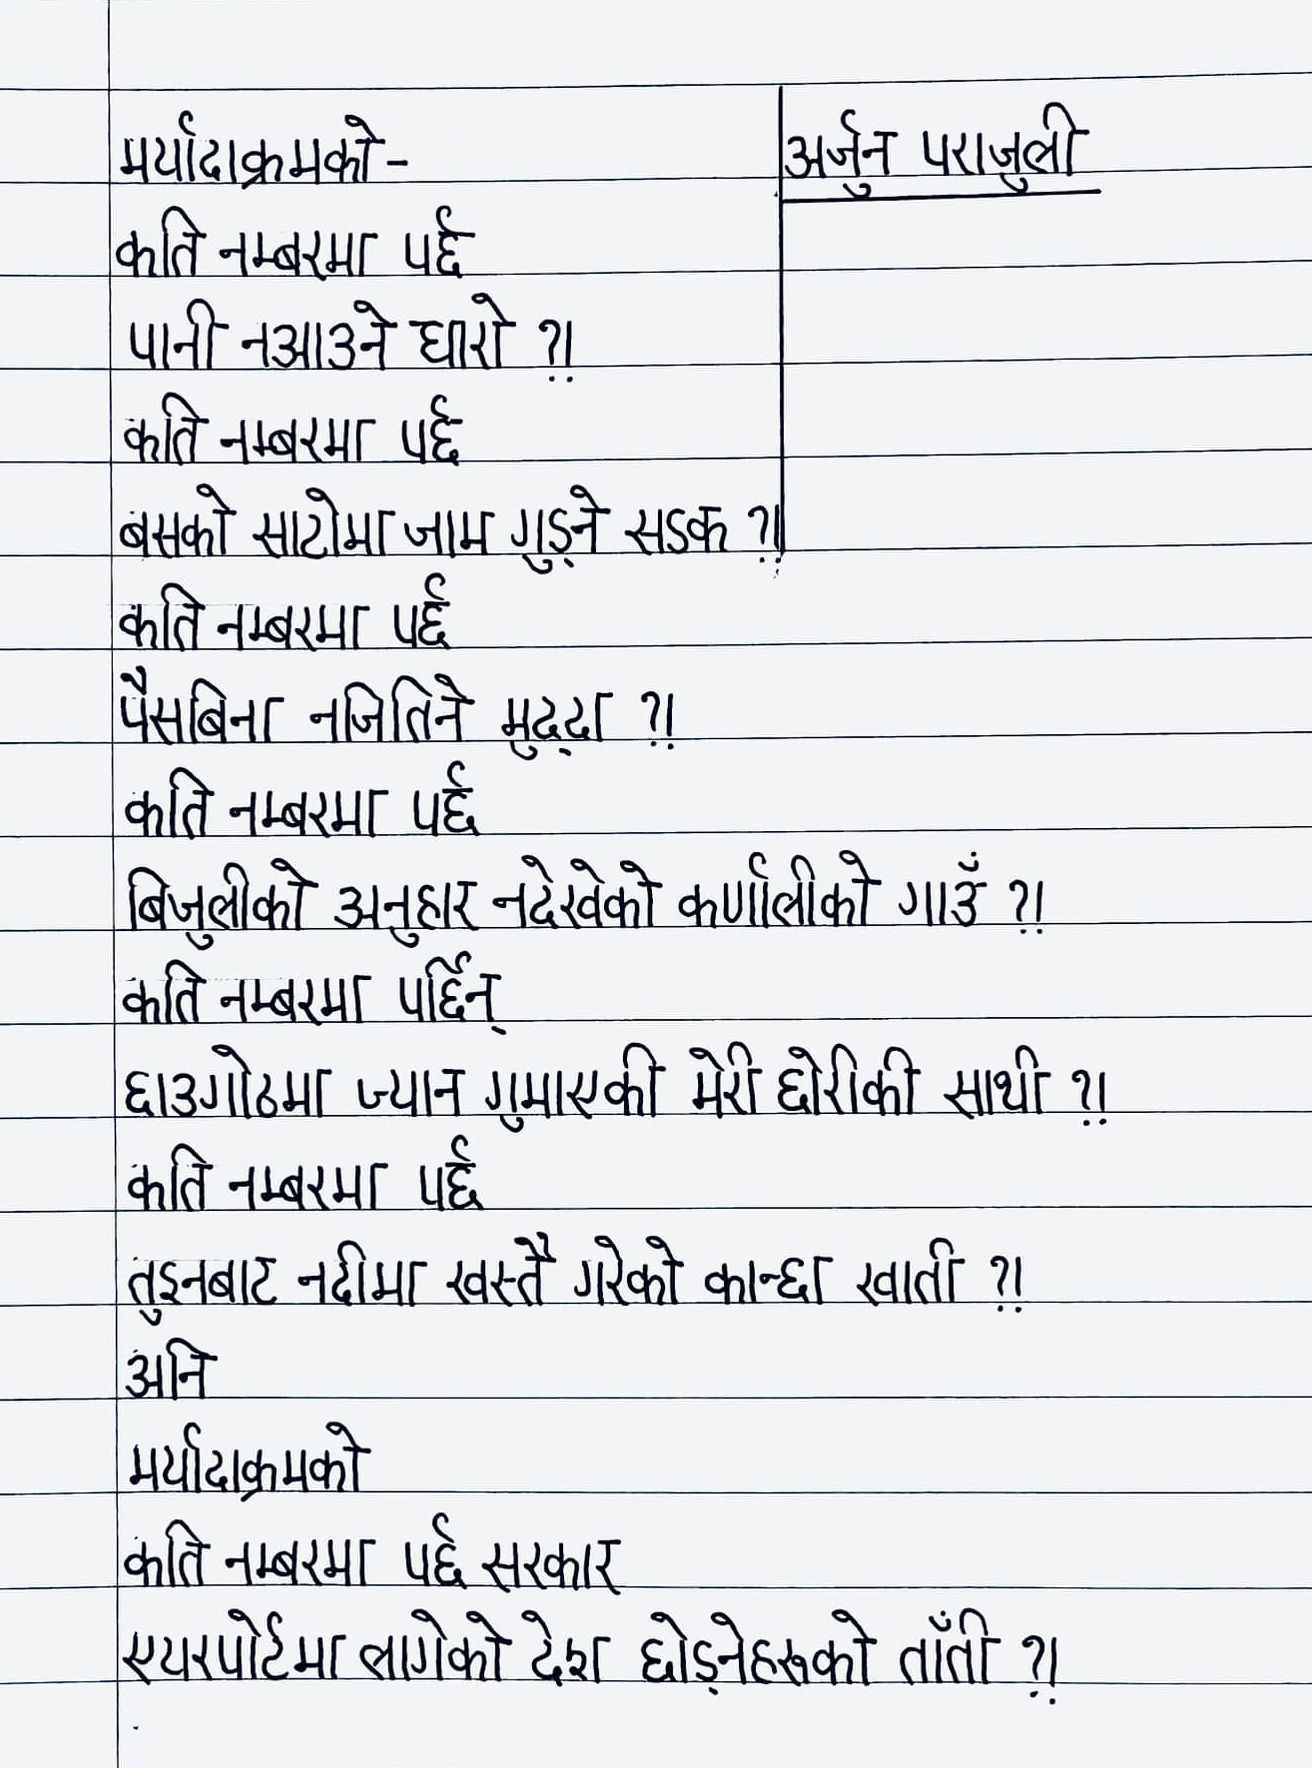 मर्यादाक्रमको-
अर्जुन पराजुली
कति नम्बरमा पर्छ
पानी नआउने धारो ?!
कति नम्बरमा पर्छ
बसको साटोमा जाम गुड्ने सडक ?!
कति नम्बरमा पर्छ
पैसबिना नजितिने मुद्दा ?!
कति नम्बरमा पर्छ
बिजुलीको अनुहार नदेखेको कर्णालीको गाउँ ?!
कति नम्बरमा पर्छिन्
छाउगोठमा ज्यान गुमाएकी मेरी छोरीकी साथी ?!
कति नम्बरमा पर्छ
तुइनबाट नदीमा खस्तै गरेको कान्छा खाती ?!
अनि
मर्यादाक्रमको
कति नम्बरमा पर्छ सरकार
एयरपोर्टमा लागेको देश छोड्नेहरूको ताँती ?!